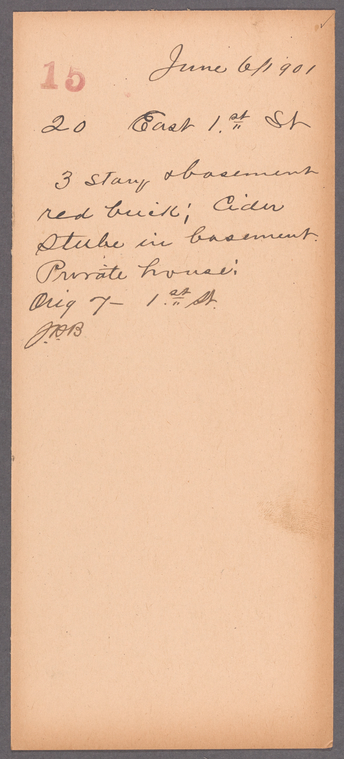 15
June 6/1901
20 East 1.st St
3 story & basement
red brick; Cider
Stube in basement.
Private house;
Orig 7 – 1.st St.
J.H.B